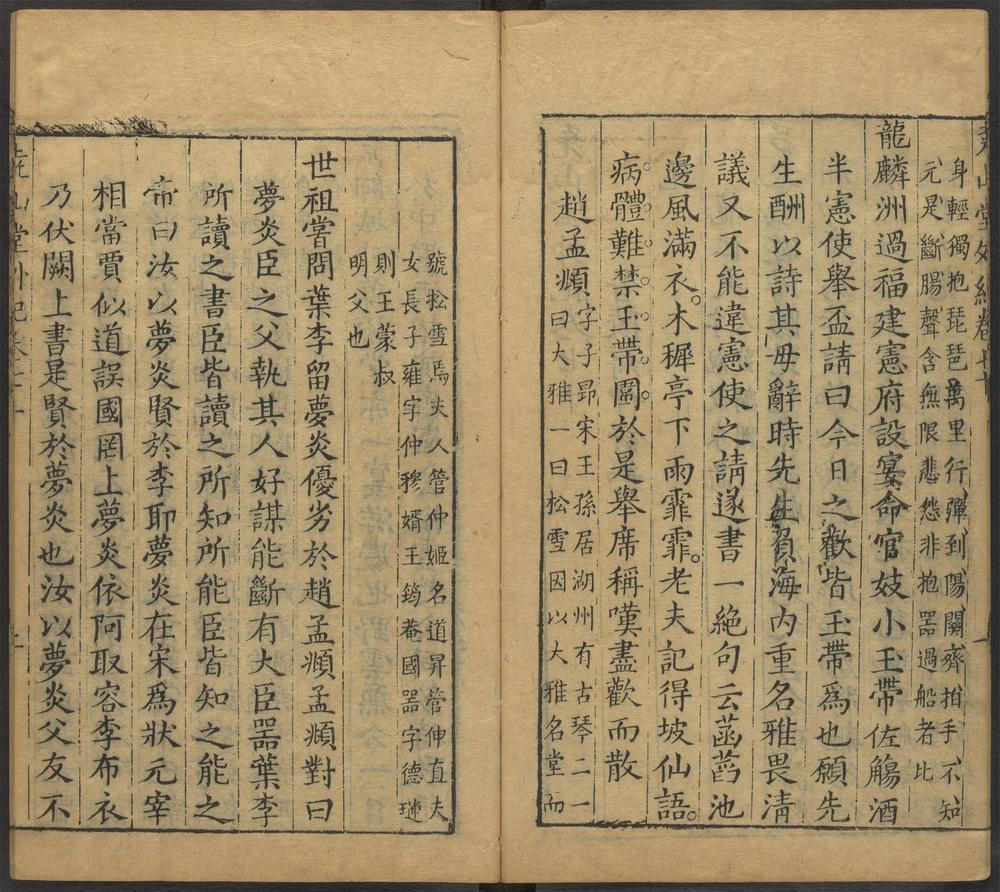 堯山堂外紀卷七十
身輕獨抱琵琶萬里行彈到陽關齊拍手不知
元是斷腸聲含無限悲怨非抱器過船者比
龍麟洲過福建憲府設宴命官妓小玉帶佐觴酒
半憲使舉盃請曰今日之歡皆玉帶為也願先
生酬以詩其毋辭時先生負海內重名雅畏清
議又不能違憲使之請遂書一絕句云菡萏池
邊風滿衣。木樨亭下雨霏霏。老夫記得坡仙語。
病體難禁玉帶圍。於是舉席稱嘆盡歡而散
趙孟頫
字子昻宋王孫居湖州有古琴二一
曰大雅一曰松雪因以大雅名堂而
號松雪焉夫人管仲姬名道昇管伸直夫
女長子雍字仲穆婿王筠菴國器字德璉
則王蒙叔
明父也
世祖嘗問葉李留夢炎優劣於趙孟頫孟頫對曰
夢炎臣之父執其人好謀能斷有大臣器葉李
所讀之書臣皆讀之所知所能臣皆知之能之
帝曰汝以夢炎賢於李耶夢炎在宋為狀元宰
相當賈似道誤國罔上夢炎依阿取容李布衣
乃伏闕上書是賢於夢炎也汝以夢炎父友不
堯山堂外紀卷七十